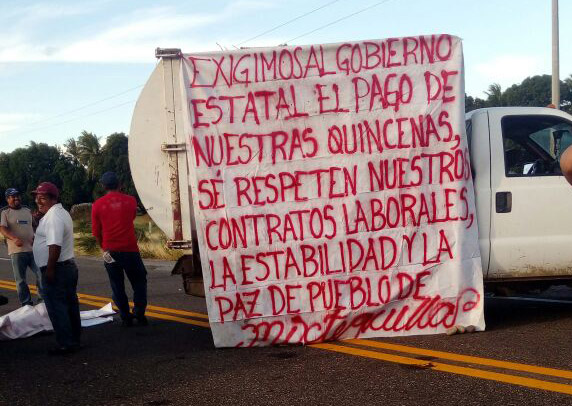 EXIGIMOS AL GOBIERNO
ESTATAL EL PAGO DE
NUESTRAS QUINCENAS,
SÉ RESPETEN NUESTROS
CONTRATOS LABORALES,
LA ESTABILIDAD Y LA
PAZ DE PUEBLO DE